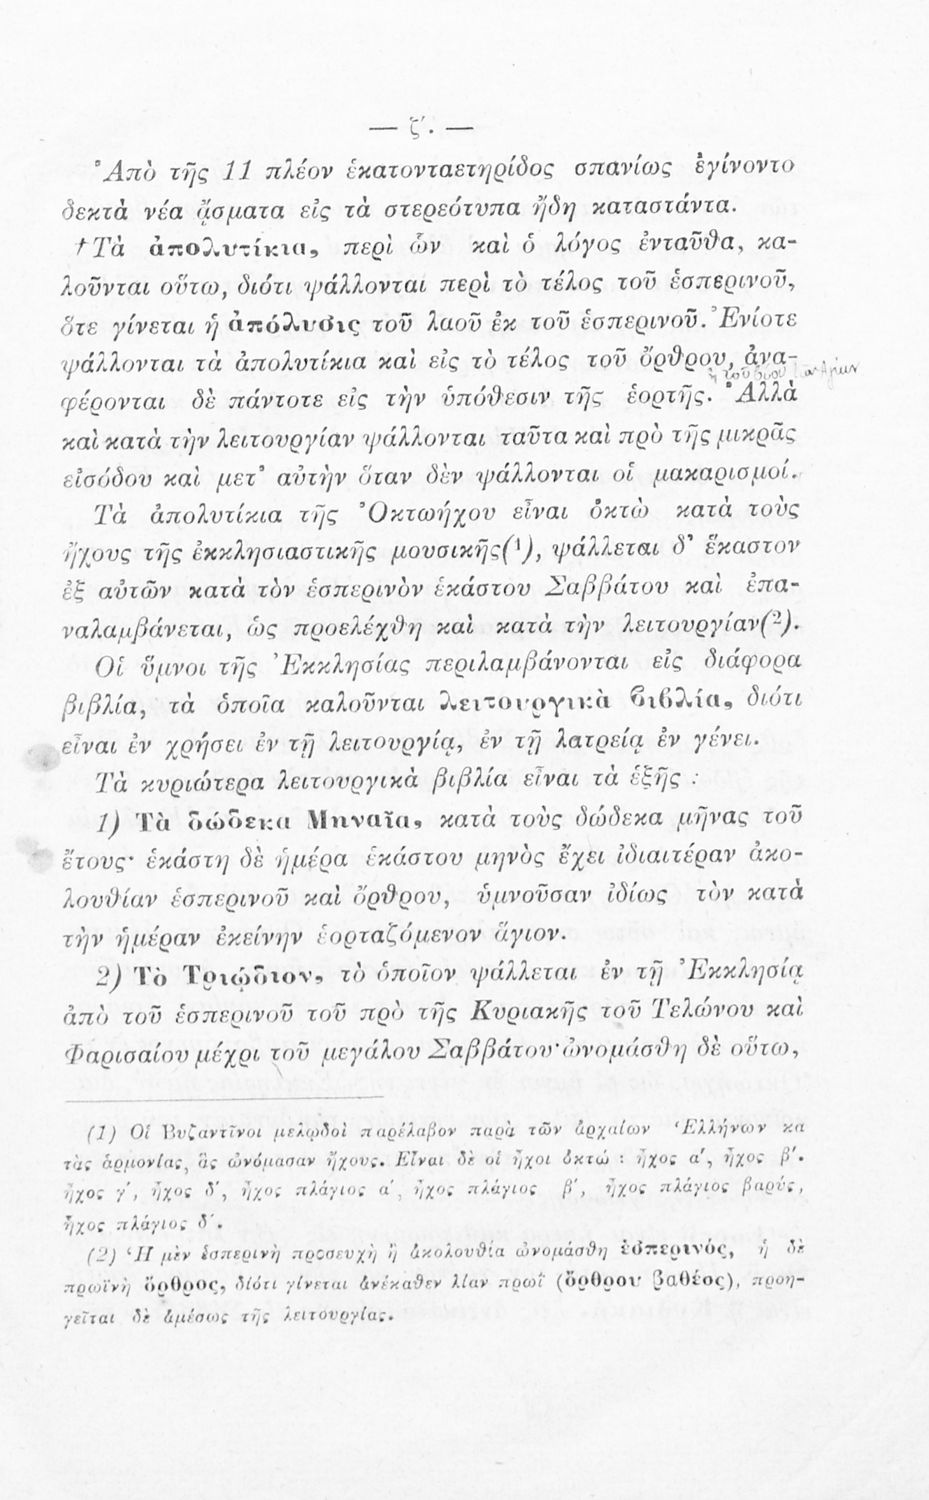 — ζ΄. —
Ἀπὸ τῆς 11 πλέον ἑκατονταετηρίδος σπανίως ἐγίνοντο
δεκτὰ νέα ᾄσματα εἰς τὰ στερεότυπα ἤδη καταστάντα.
†Τὰ ἀπολυτίκια, περὶ ὧν καὶ ὁ λόγος ἐνταῦθα, κα-
λοῦνται οὕτω, διότι ψάλλονται περὶ τὸ τέλος τοῦ ἑσπερινοῦ,
ὅτε γίνεται ἡ ἀπόλυσις τοῦ λαοῦ ἐκ τοῦ ἑσπερινοῦ. Ἐνίοτε
ψάλλονται τὰ ἀπολυτίκια καὶ εἰς τὸ τέλος τοῦ ὄρθρου, ἀνα-
ἢ τοῦ βίου τῶν Ἁγίων
φέρονται δὲ πάντοτε εἰς τὴν ὑπόθεσιν τῆς ἑορτῆς. Ἀλλὰ
καὶ κατὰ τὴν λειτουργίαν ψάλλονται ταῦτα καὶ πρὸ τῆς μικρᾶς
εἰσόδου καὶ μετ' αὐτὴν ὅταν δὲν ψάλλονται οἱ μακαρισμοί.
Τὰ ἀπολυτίκια τῆς Ὀκτωήχου εἶναι ὀκτὼ κατὰ τοὺς
ἤχους τῆς ἐκκλησιαστικῆς μουσικῆς(¹), ψάλλεται δ' ἕκαστον
ἐξ αὐτῶν κατὰ τὸν ἑσπερινὸν ἑκάστου Σαββάτου καὶ ἐπα-
ναλαμβάνεται, ὡς προελέχθη καὶ κατὰ τὴν λειτουργίαν(²).
Οἱ ὕμνοι τῆς Ἐκκλησίας περιλαμβάνονται εἰς διάφορα
βιβλία, τὰ ὁποῖα καλοῦνται λειτουργικὰ βιβλία, διότι
εἶναι ἐν χρήσει ἐν τῇ λειτουργίᾳ, ἐν τῇ λατρείᾳ ἐν γένει.
Τὰ κυριώτερα λειτουργικὰ βιβλία εἶναι τὰ ἑξῆς :
1) Τὰ δώδεκα Μηναῖα, κατὰ τοὺς δώδεκα μῆνας τοῦ
ἔτους· ἑκάστη δὲ ἡμέρα ἑκάστου μηνὸς ἔχει ἰδιαιτέραν ἀκο-
λουθίαν ἑσπερινοῦ καὶ ὄρθρου, ὑμνοῦσαν ἰδίως τὸν κατὰ
τὴν ἡμέραν ἐκείνην ἑορταζόμενον ἅγιον.
2) Τὸ Τριῴδιον, τὸ ὁποῖον ψάλλεται ἐν τῇ Ἐκκλησίᾳ
ἀπὸ τοῦ ἑσπερινοῦ τοῦ πρὸ τῆς Κυριακῆς τοῦ Τελώνου καὶ
Φαρισαίου μέχρι τοῦ μεγάλου Σαββάτου· ὠνομάσθη δὲ οὕτω,
(1) Οἱ Βυζαντῖνοι μελῳδοὶ παρέλαβον παρὰ τῶν ἀρχαίων Ἑλλήνων κα
τὰς ἁρμονίας, ἃς ὠνόμασαν ἤχους. Εἶναι δὲ οἱ ἦχοι ὀκτώ : ἦχος α΄, ἦχος β΄.
ἦχος γ΄, ἦχος δ΄, ἦχος πλάγιος α΄, ἦχος πλάγιος β΄, ἦχος πλάγιος βαρύς,
ἦχος πλάγιος δ΄.
(2) Ἡ μὲν ἑσπερινὴ προσευχὴ ἢ ἀκολουθία ὠνομάσθη ἑσπερινός, ἡ δὲ
πρωϊνὴ ὄρθρος, διότι γίνεται ἀνέκαθεν λίαν πρωΐ (ὄρθρου βαθέος), προη-
γεῖται δὲ ἀμέσως τῆς λειτουργίας.